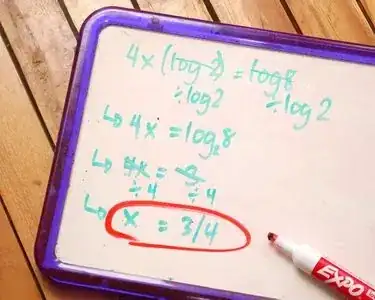 4x (log 2) = log 8
÷ log 2 ÷ log 2
↳ 4x = log₂8
↳ 4x = 3
÷ 4 ÷ 4
↳ x = 3/4
EXPO